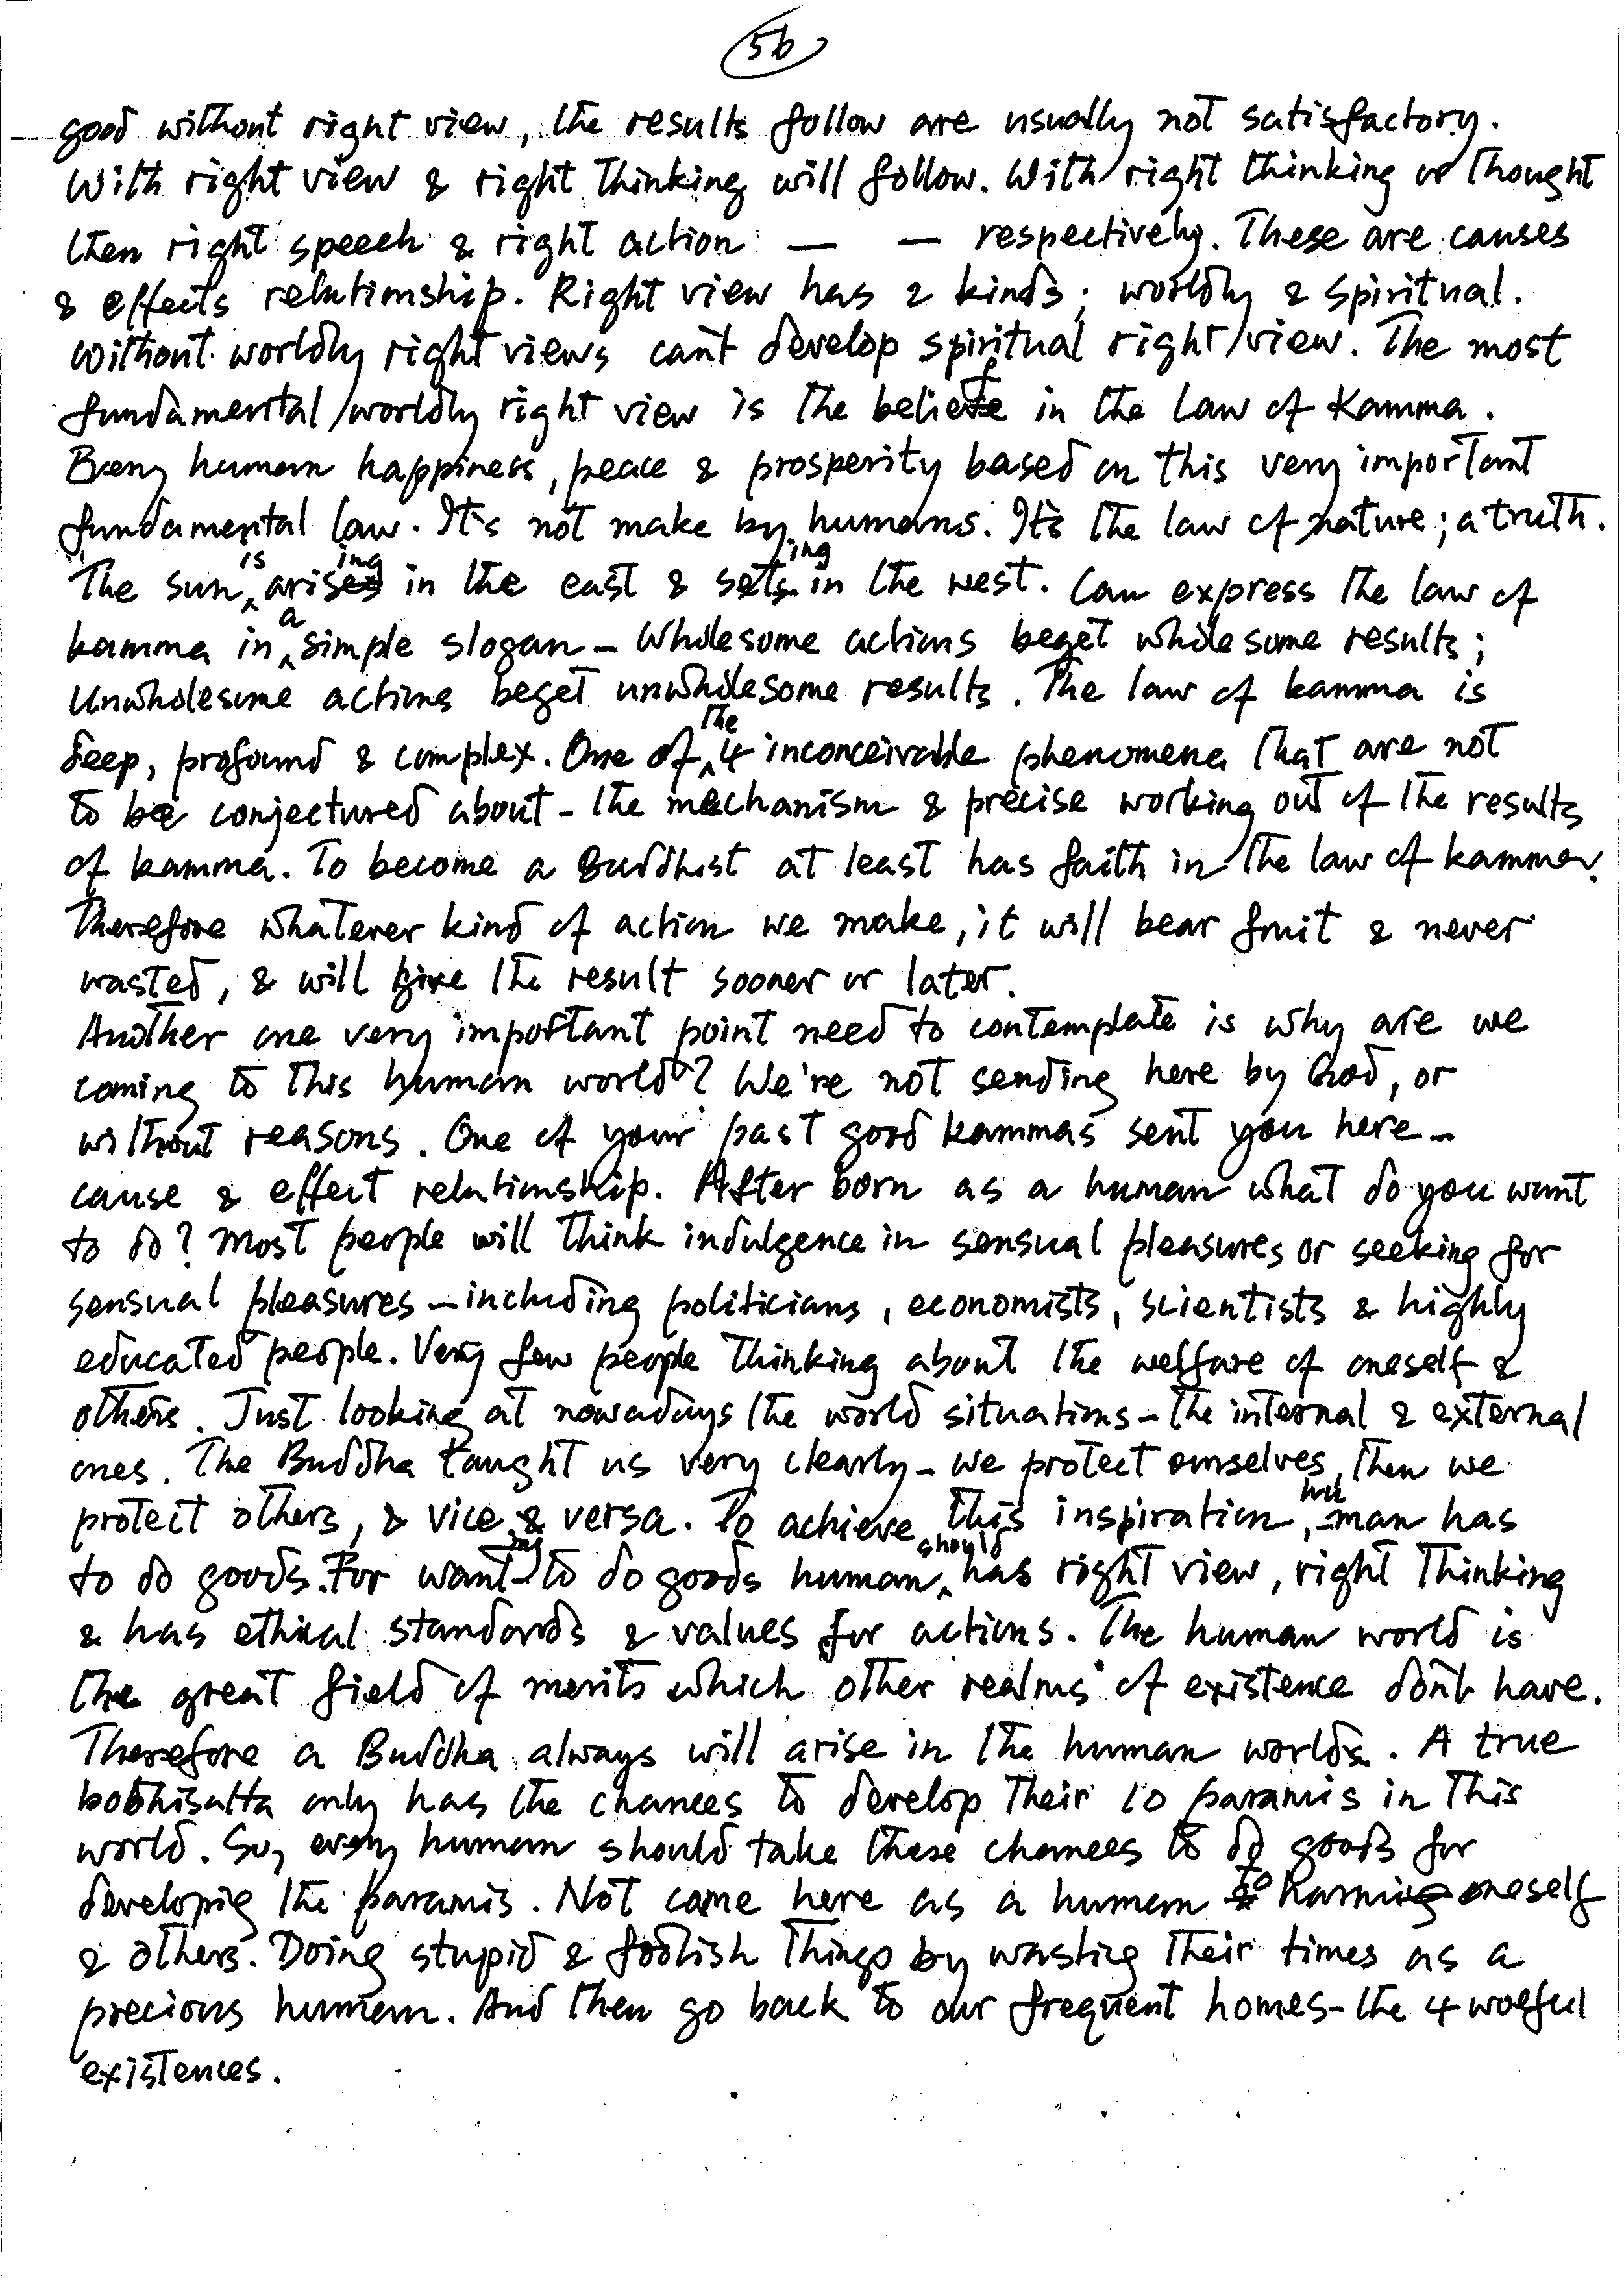 56
good without right view, the results follow are usually not satisfactory.
With right view & right thinking will follow. With right thinking or thought
then right speech & right action — — respectively. These are causes
& effects relationship. Right view has 2 kinds; worldly & spiritual.
Without worldly right views can't develop spiritual right view. The most
fundamental worldly right view is the belief in the law of Kamma.
Every human happiness, peace & prosperity based on this very important
fundamental law. It's not make by humans. It's the law of nature; a truth.
The sun is arising in the east & setting in the west. Can express the law of
kamma in a simple slogan – Wholesome actions beget wholesome results;
Unwholesome actions beget unwholesome results. The law of kamma is
deep, profound & complex. One of the 4 inconceivable phenomena that are not
to be conjectured about – the mechanism & precise working out of the results
of kamma. To become a Buddhist at least has faith in the law of kamma.
Therefore whatever kind of action we make, it will bear fruit & never
wasted, & will give the result sooner or later.
Another one very important point need to contemplate is why are we
coming to this human world? We're not sending here by God, or
without reasons. One of your past good kammas sent you here –
cause & effect relationship. After born as a human what do you want
to do? Most people will think indulgence in sensual pleasures or seeking for
sensual pleasures – including politicians, economists, scientists & highly
educated people. Very few people thinking about the welfare of oneself &
others. Just looking at nowadays the world situations – the internal & external
ones. The Buddha taught us very clearly – we protect ourselves, then we
protect others, & vice & versa. To achieve this inspiration, human has
to do goods. For wanting to do goods human should has right view, right thinking
& has ethical standards & values for actions. The human world is
the great field of merits which other realms of existence don't have.
Therefore a Buddha always will arise in the human worlds. A true
bodhisatta only has the chances to develop their 10 paramis in this
world. So, every human should take these chances to do goods for
developig the paramis. Not come here as a human to harm oneself
& others. Doing stupid & foolish things by wastig their times as a
precious human. And then go back to our frequent homes – the 4 woeful
existences.